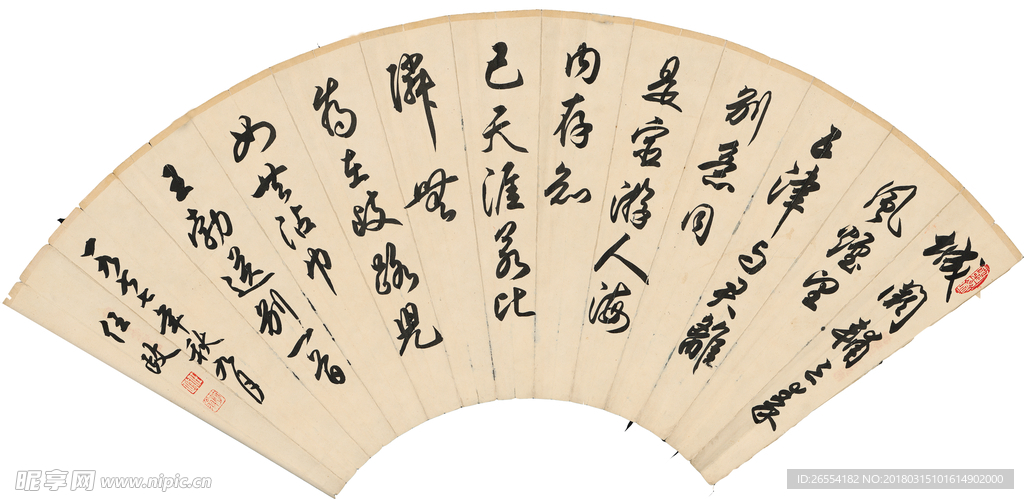 城闕輔三秦
風煙望
五津与君離
别意同
是宦游人海
内存知
己天涯若比
隣無
為在歧路児
女共沾巾
王勃送别一首
一九七年秋九月
任政
昵享网 www.nipic.cn
ID:26554182 NO:20180315101614902000